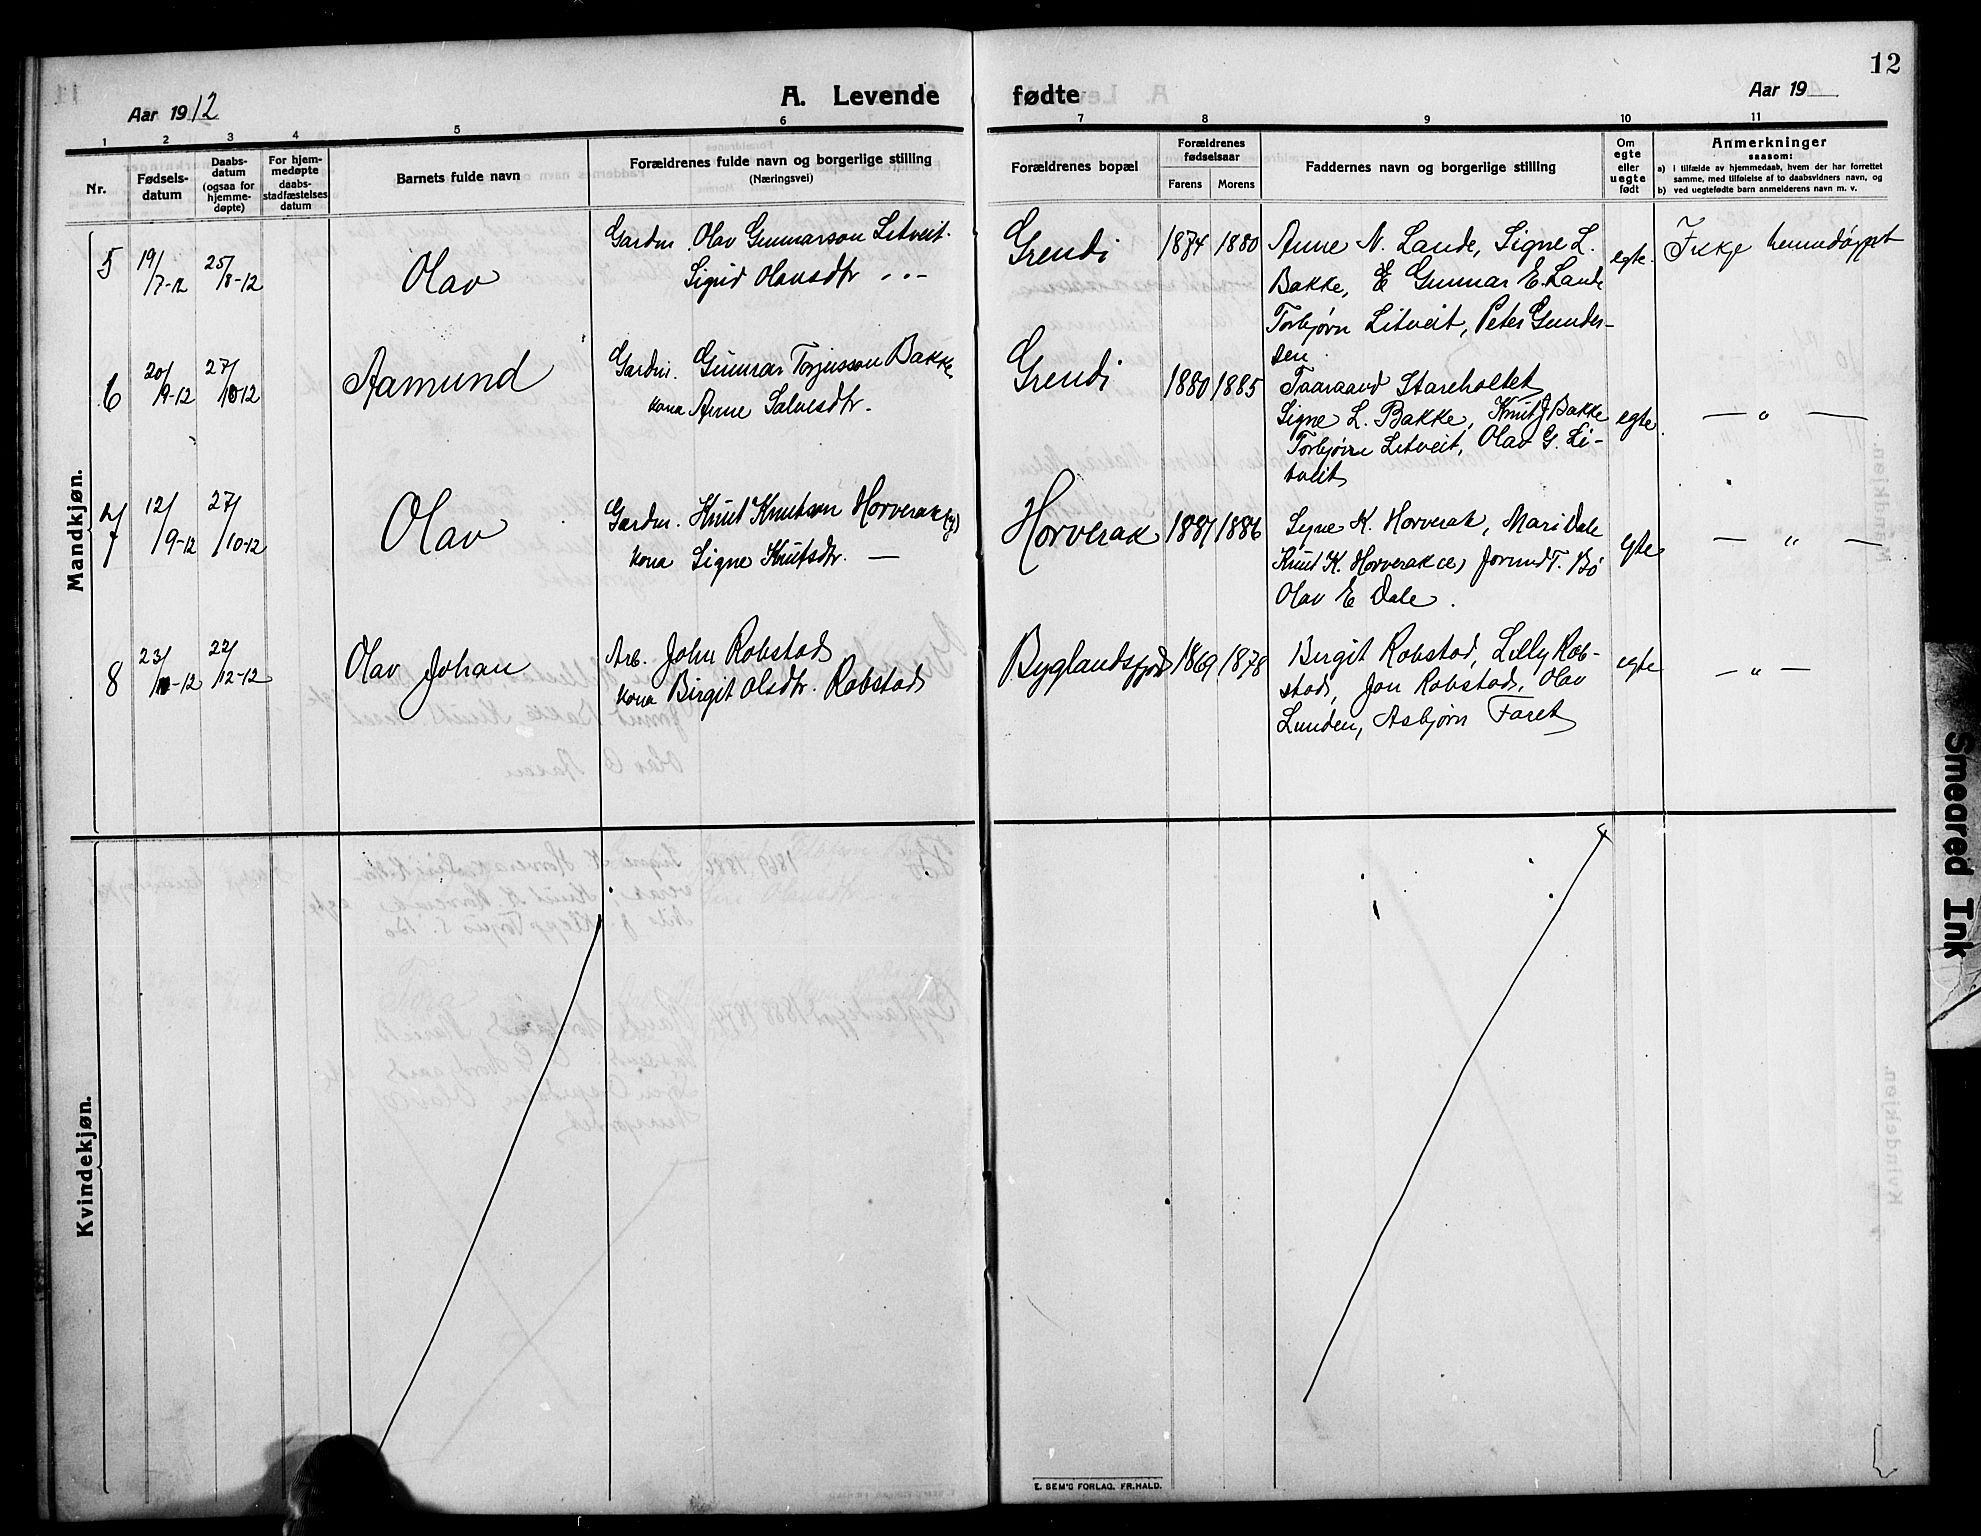 12
Aar 1912
A. Levende fødte
Aar 19
1 2 3 4 5 6 7 8 9 10 11
Nr.
Fødsels-
datum
Daabs-
datum
(ogsaa for
hjemme-
døpte)
For hjem-
medøpte
daabs-
stadfæstelses
datum
Barnets fulde navn
Forældrenes fulde navn og borgerlige stilling
(Næringsvei)
Forældrenes bopæl
Forældrenes
fødselsaar
Farens Morens
Faddernes navn og borgerlige stilling
Om
egte
eller
uegte
født
Anmerkninger
saasom:
a) i tilfælde av hjemmedaab, hvem der har forrettet
samme, med tilføielse af to daabsvidners navn, og
b) ved uegtefødte barn anmelderens navn m. v.
Mandkjøn.
5 19/7-12 25/8-12 Olav
Gardm. Olav Gunnarson Litveit.
Sigrid Olavsdtr. - " -
Grendi 1874 1880
Anne N. Lande, Signe L.
Bakke, E Gunnar E. Lande
Torbjørn Litveit, Peter Gunder-
sen.
egte. Ikkje heimdøypt
6 20/9-12 27/10-12 Aamund
Gardm. Gunnar Torjusson Bakke
kona Anne Salvesdtr.
Grendi 1880 1885
Taaraand Stareholtet
Signe L. Bakke, Knut J Bakke
Torbjørn Litveit, Olav G. Li-
tveit
egte. — " —
7 12/9-12 27/10-12 Olav
Gardm. Knut Knutson Horverak
kona Signe Knutsdtr. —
Horverak 1881 1886
Sygne K. Horverak, Mari Dale
Knut K. Horverak, Jorund T. Bø
Olav E Dale.
egte — " —
8 23/11-12 22/12-12 Olav Johan
Arb. John Robstad
kona Birgit Olsdtr. Robstad
Byglandsfjord 1869 1878
Birgit Robstad, Lilly Rob-
stad, Jon Robstad, Olav
Lunden, Asbjørn Faret
egte — " —
Kvindekjøn.
E. SEM'S FORLAG. FR.HALD.
Smeared Ink